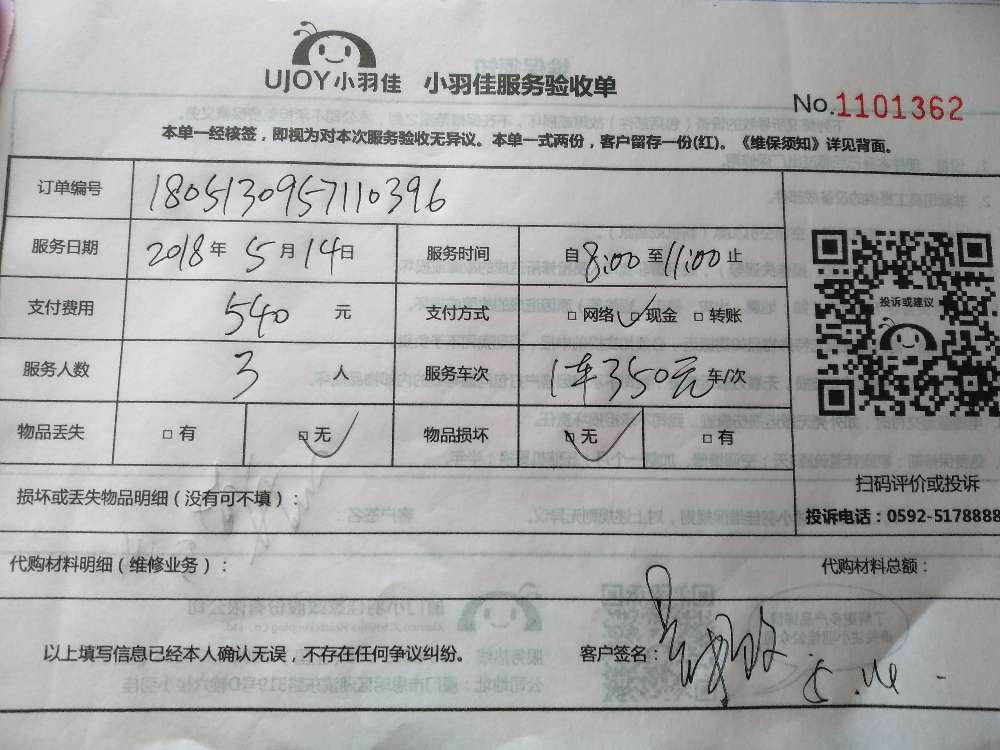 UJOY小羽佳 小羽佳服务验收单
No.1101362
本单一经核签，即视为对本次服务验收无异议。本单一式两份，客户留存一份(红)。《维保须知》详见背面。
订单编号 1805130957110396
服务日期 2018年5月14日 服务时间 自8:00至11:00止
支付费用 540元 支付方式 □网络 □现金 □转账
服务人数 3人 服务车次 1车350元车/次
物品丢失 □有 □无 物品损坏 □无 □有
投诉或建议
扫码评价或投诉
投诉电话：0592-5178888
损坏或丢失物品明细（没有可不填）：
代购材料明细（维修业务）： 代购材料总额：
以上填写信息已经本人确认无误，不存在任何争议纠纷。 客户签名： 5.14